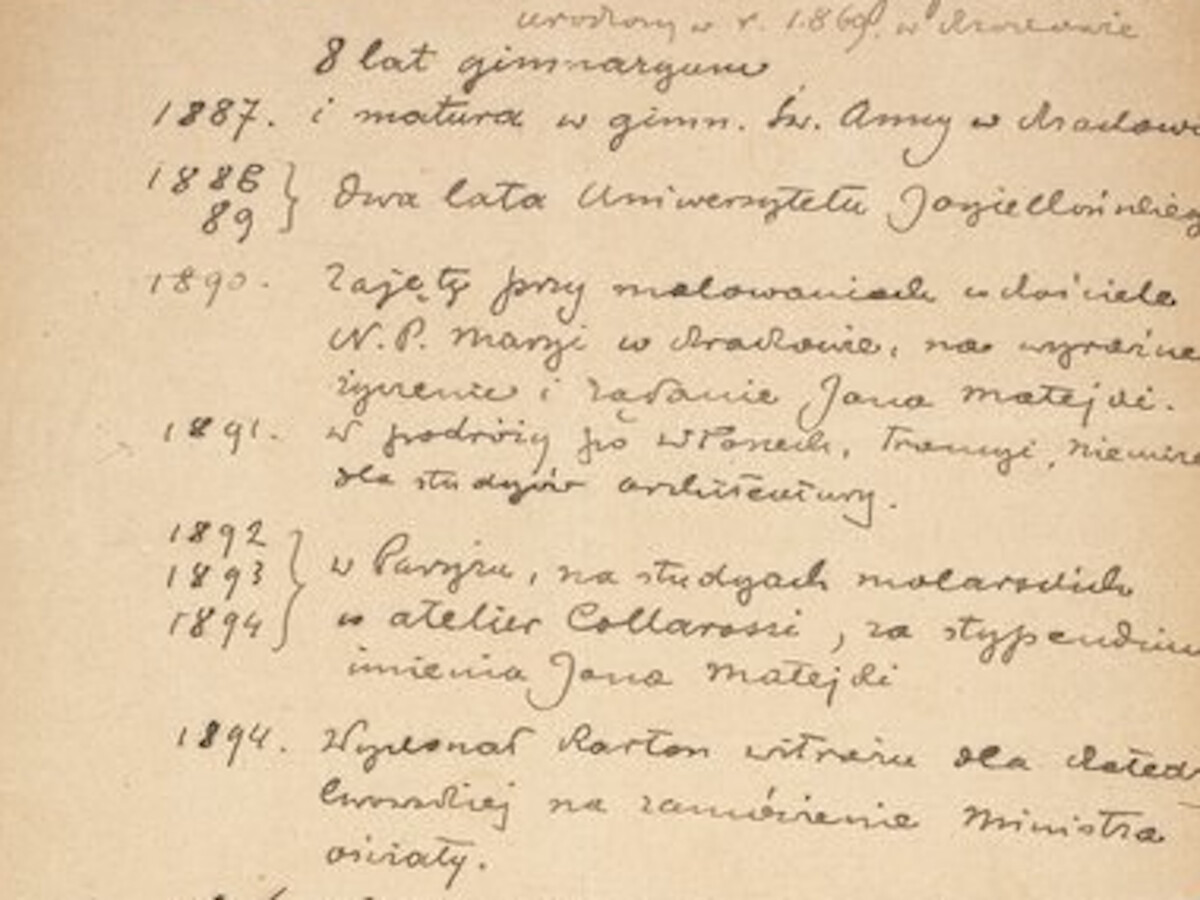 urodzony w r. 1869. w Krakowie
8 lat gimnazyum
1887. i matura w gimn. Św. Anny w Krakowi
1888 } dwa lata Uniwersytetu Jagiellońskieg
89
1890. Zajęty przy malowaniach w kościele
N. P. Maryi w Krakowie, na wyraźne
życzenie i żądanie Jana Matejki.
1891. w podróży po Włoszech, Francyi, Niemcze
dla studyów architektury.
1892
1893 } w Paryżu, na studyach malarskich
1894 w atelier Collarossi, za stypendium
imienia Jana Matejki
1894. Wykonał karton witrażu dla Katedr
lwowskiej na zamówienie Ministra
oświaty.